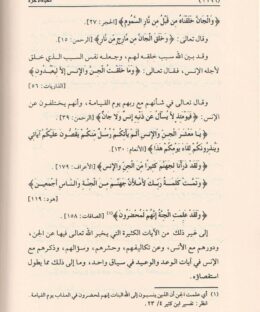 ﴿ وَالْجَانَّ خَلَقْنَاهُ مِن قَبْلُ مِن نَّارِ السَّمُومِ ﴾ [الحجر: ٢٧].
وقال تعالى: ﴿ وَخَلَقَ الْجَانَّ مِن مَّارِجٍ مِّن نَّارٍ ﴾ [الرحمن: ١٥].
وقد بين الله سبب خلقهم، وجعله نفس السبب الذي خلق
لأجله الإنس، فقال تعالى: ﴿ وَمَا خَلَقْتُ الْجِنَّ وَالْإِنسَ إِلَّا لِيَعْبُدُونِ ﴾
[الذاريات: ٥٦]
وقال تعالى في شأنهم مع ربهم يوم القيامة، وأنهم يختلفون عن
الإنس: ﴿ فَيَوْمَئِذٍ لَّا يُسْأَلُ عَن ذَنبِهِ إِنسٌ وَلَا جَانٌّ ﴾ [الرحمن: ٣٩]
﴿ يَا مَعْشَرَ الْجِنِّ وَالْإِنسِ أَلَمْ يَأْتِكُمْ رُسُلٌ مِّنكُمْ يَقُصُّونَ عَلَيْكُمْ آيَاتِي
وَيُنذِرُونَكُمْ لِقَاءَ يَوْمِكُمْ هَذَا ﴾ [الأنعام: ١٣٠].
﴿ وَلَقَدْ ذَرَأْنَا لِجَهَنَّمَ كَثِيرًا مِّنَ الْجِنِّ وَالْإِنسِ ﴾ [الأعراف: ١٧٩].
﴿ وَتَمَّتْ كَلِمَةُ رَبِّكَ لَأَمْلَأَنَّ جَهَنَّمَ مِنَ الْجِنَّةِ وَالنَّاسِ أَجْمَعِينَ ﴾
[هود: ١١٩]
﴿ وَلَقَدْ عَلِمَتِ الْجِنَّةُ إِنَّهُمْ لَمُحْضَرُونَ ﴾(١) [الصافات: ١٥٨].
إلى غير ذلك من الآيات الكثيرة التي يخبر الله تعالى فيها عن الجن،
ودورهم مع الأنس، وعن تكاليفهم، وحشرهم، وسؤالهم، وذكرهم مع
الإنس في آيات الوعد والوعيد في سياق واحد، مما يطول
استقصاؤه.
(١) أي علمت الجن أن الذين ينسبون إلى الله البنات إنهم لمحضرون في العذاب يوم القيامة.
انظر: تفسير ابن كثير ٤/ ٢٣.